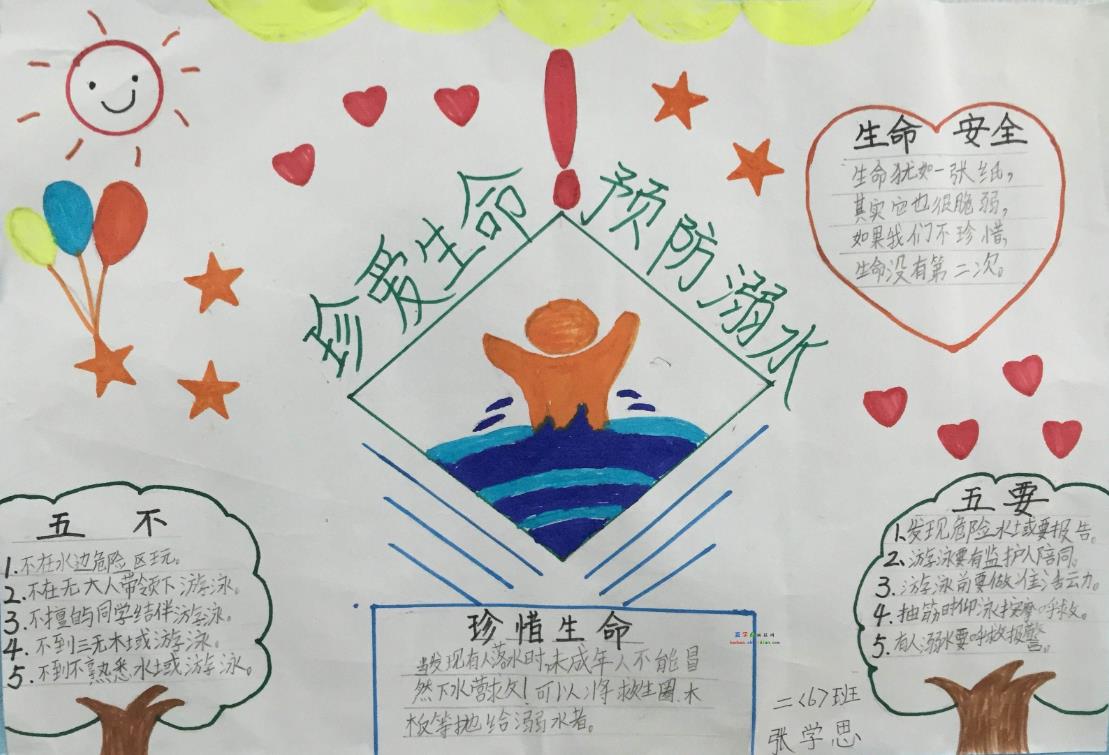 珍爱生命
预防溺水
生命 安全
生命犹如一张纸，
其实它也很脆弱，
如果我们不珍惜，
生命没有第二次。
五 不
1.不在水边危险区玩。
2.不在无大人带领下游泳。
3.不擅自与同学结伴游泳。
4.不到三无水域游泳。
5.不到不熟悉水域游泳。
五要
1.发现危险水域要报告。
2.游泳要有监护人陪同。
3.游泳前要做准备活动。
4.抽筋时仰泳挨岸呼救。
5.有人溺水要呼救报警。
珍惜生命
当发现有人落水时，未成年人不能冒
然下水营救！可以将救生圈、木
板等抛给溺水者。
二〈6〉班
张学思